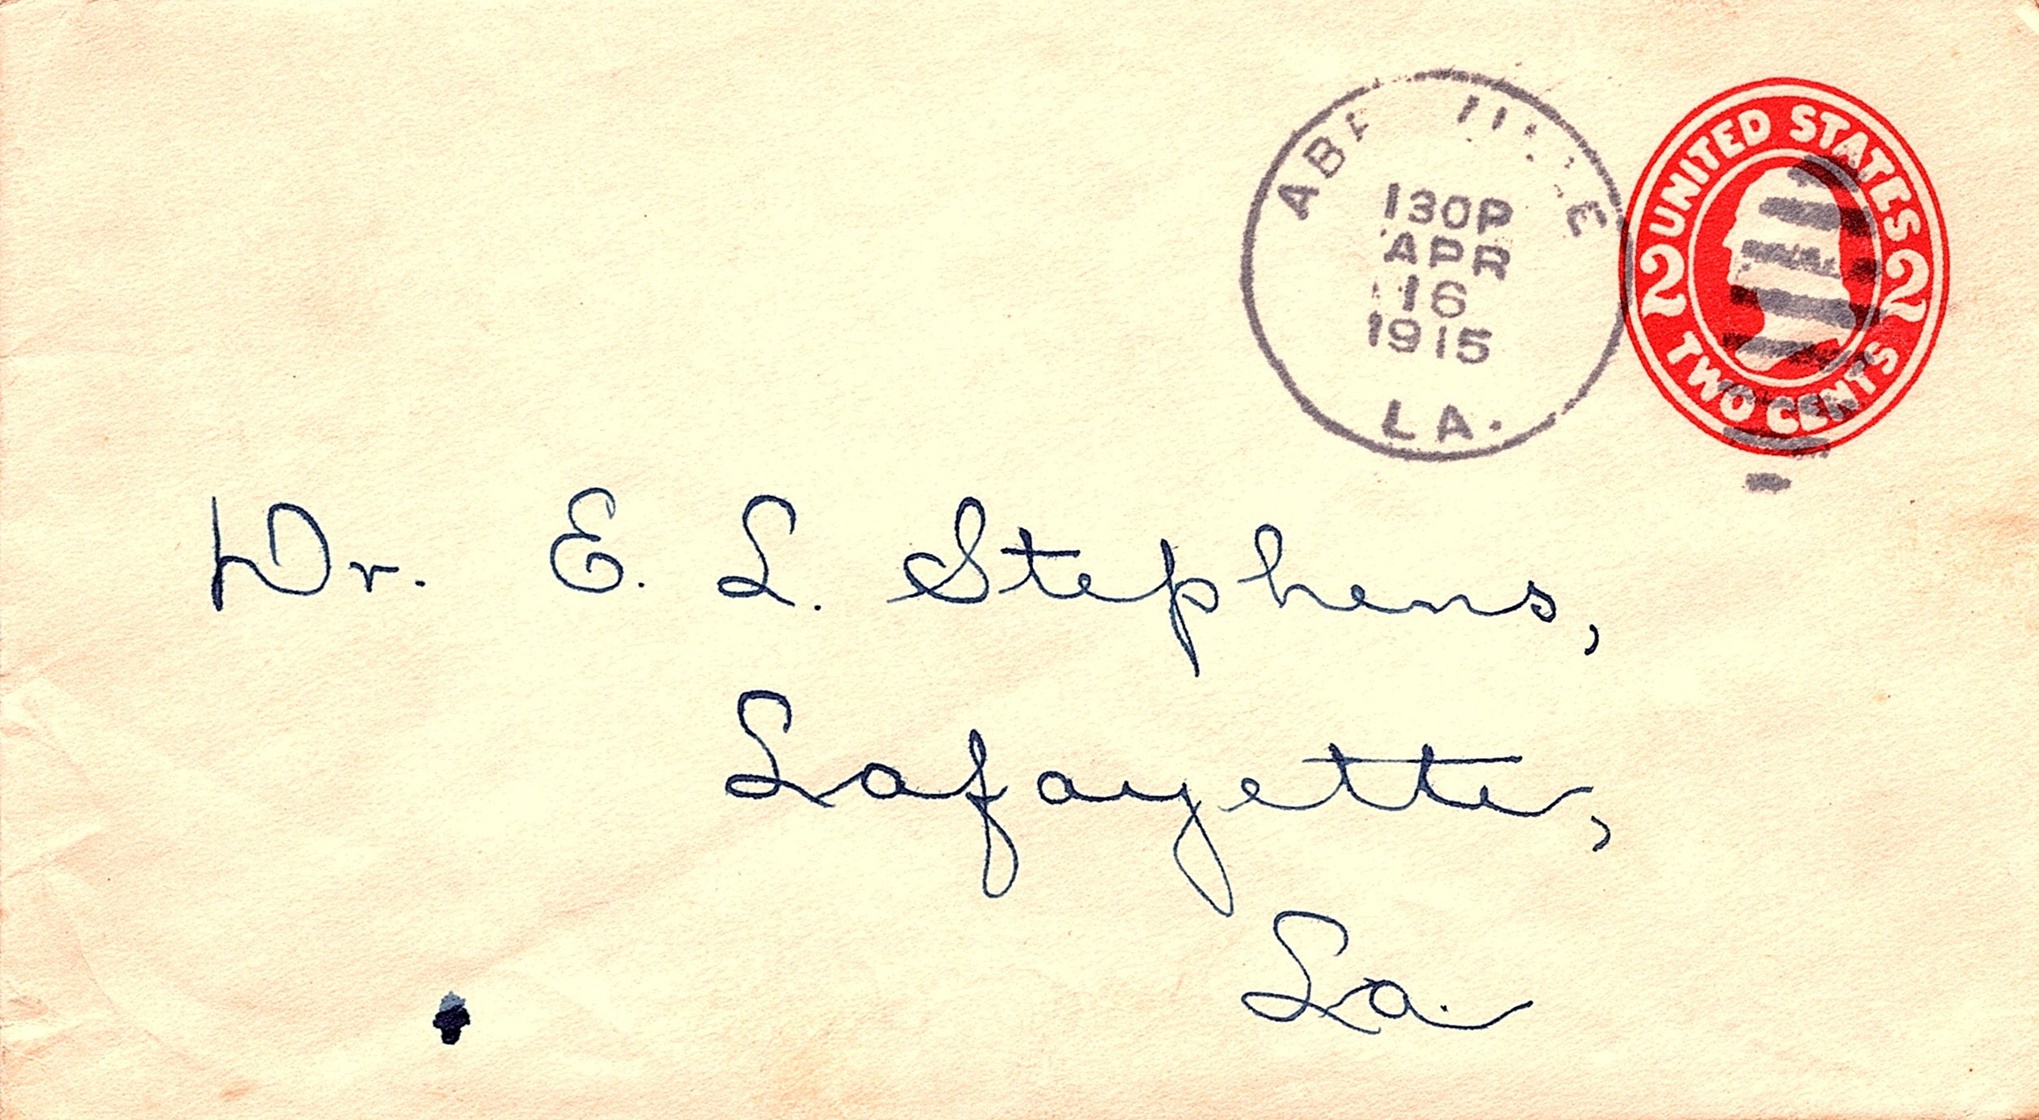 130P
APR
16
1915
LA.
UNITED STATES
2 2
TWO CENTS
Dr. E. L. Stephens,
Lafayette,
La.